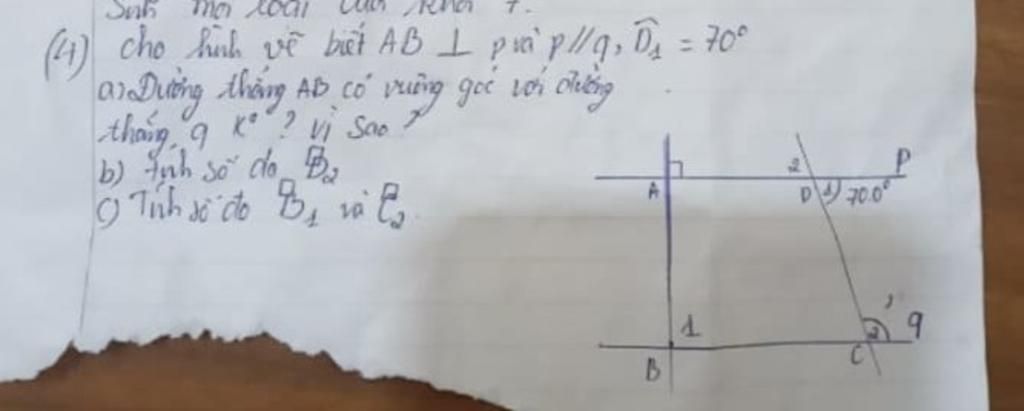 Sinh mỗi loại của khối 7.
(4) cho hình vẽ biết AB ⊥ p và p//q, D̂₁ = 70°
a) Đường thẳng AB có vuông góc với đường
thẳng q k° ? vì sao ?
b) tính số đo D̂₂
c) Tính số đo B̂₁ và Ĉ₂
2 P
A D 1) 70°
1 2 q
B C